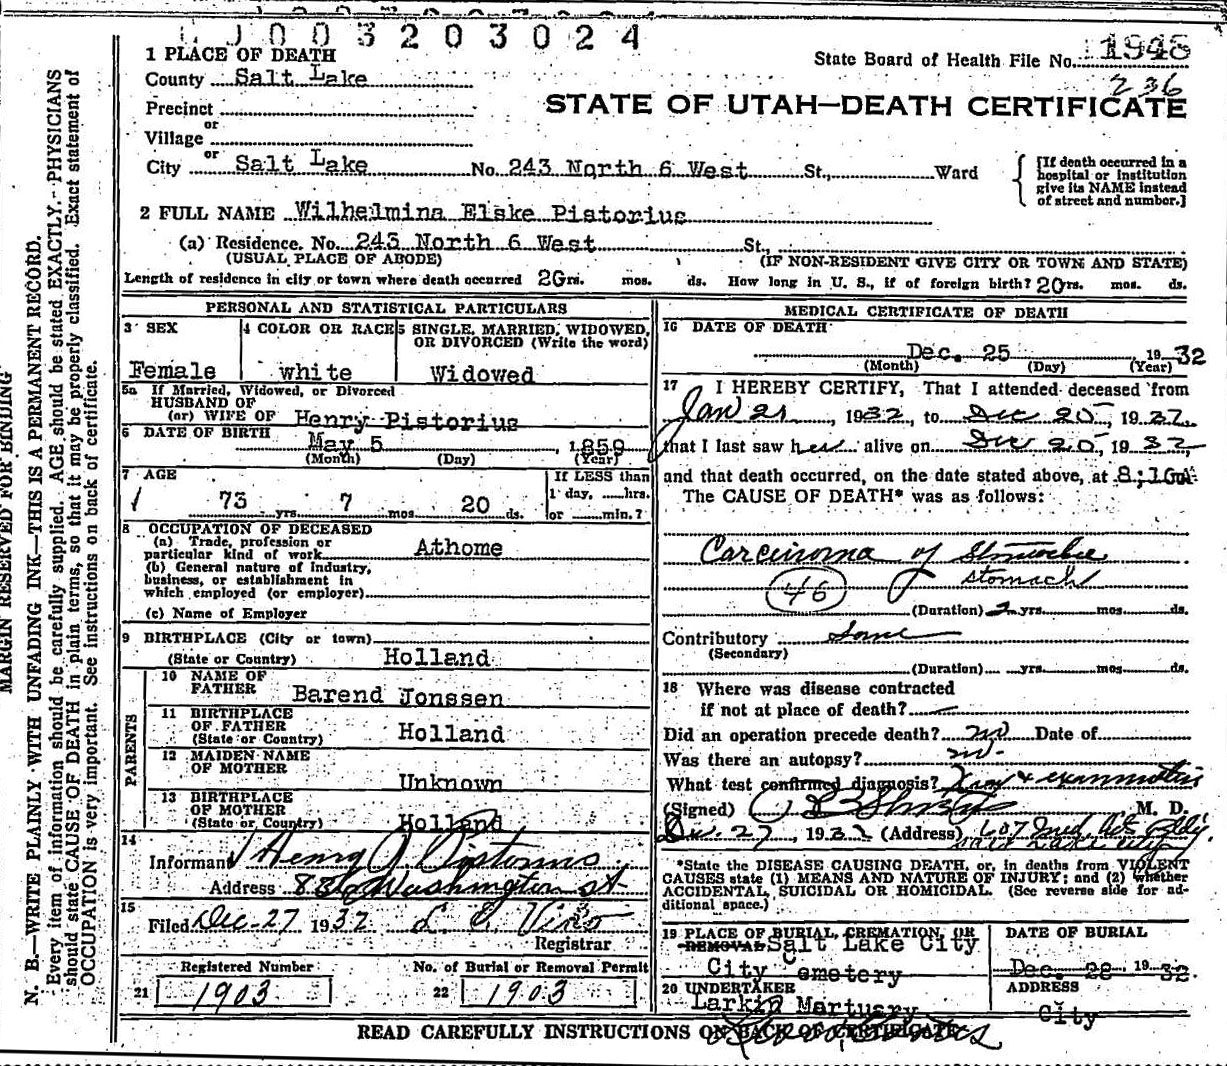 0003203024
State Board of Health File No. 1948
236
STATE OF UTAH—DEATH CERTIFICATE
1 PLACE OF DEATH
County Salt Lake
Precinct
or
Village
or
City Salt Lake No. 243 North 6 West St., Ward
[If death occurred in a hospital or institution give its NAME instead of street and number.]
2 FULL NAME Wilhelmina Elske Pistorius
(a) Residence. No. 243 North 6 West St.,
(USUAL PLACE OF ABODE) (IF NON-RESIDENT GIVE CITY OR TOWN AND STATE)
Length of residence in city or town where death occurred 20 yrs. mos. ds. How long in U. S., if of foreign birth? 20 yrs. mos. ds.
PERSONAL AND STATISTICAL PARTICULARS
3 SEX
Female
4 COLOR OR RACE
white
5 SINGLE, MARRIED, WIDOWED,
OR DIVORCED (Write the word)
Widowed
5a If Married, Widowed, or Divorced
HUSBAND OF
(or) WIFE OF Henry Pistorius
6 DATE OF BIRTH May 5, 1859
(Month) (Day) (Year)
7 AGE
73 yrs 7 mos 20 ds.
If LESS than
1 day, hrs.
or min.?
8 OCCUPATION OF DECEASED
(a) Trade, profession or
particular kind of work Athome
(b) General nature of industry,
business, or establishment in
which employed (or employer)
(c) Name of Employer
9 BIRTHPLACE (City or town)
(State or Country) Holland
PARENTS
10 NAME OF
FATHER Barend Jonssen
11 BIRTHPLACE
OF FATHER
(State or Country) Holland
12 MAIDEN NAME
OF MOTHER
Unknown
13 BIRTHPLACE
OF MOTHER
(State or Country) Holland
14
Informant Henry J Pistorius
Address 836 Washington st
15
Filed Dec-27 1932
Registrar
Registered Number No. of Burial or Removal Permit
21 1903 22 1903
MEDICAL CERTIFICATE OF DEATH
16 DATE OF DEATH
Dec. 25 1932
(Month) (Day) (Year)
17 I HEREBY CERTIFY, That I attended deceased from
Jan 21, 1932, to Dec 25, 1932
that I last saw her alive on Dec 25, 1932,
and that death occurred, on the date stated above, at
The CAUSE OF DEATH* was as follows:
Carcinoma of
stomach
46
(Duration) 2 yrs. mos. ds.
Contributory
(Secondary)
(Duration) yrs. mos. ds.
18 Where was disease contracted
if not at place of death? —
Did an operation precede death? no Date of
Was there an autopsy? no.
What test confirmed diagnosis? Xray & examination
(Signed) M. D.
Dec. 27, 1932 (Address) 607 Med. Arts Bldg
Salt Lake City
*State the DISEASE CAUSING DEATH, or, in deaths from VIOLENT
CAUSES state (1) MEANS AND NATURE OF INJURY; and (2) whether
ACCIDENTAL, SUICIDAL OR HOMICIDAL. (See reverse side for ad-
ditional space.)
19 PLACE OF BURIAL, CREMATION, OR
REMOVAL Salt Lake City
City Cemetery
DATE OF BURIAL
Dec. 28, 1932.
20 UNDERTAKER
Larkin Martuary
ADDRESS
City
READ CAREFULLY INSTRUCTIONS ON BACK OF CERTIFICATE
MARGIN RESERVED FOR BINDING
N. B.—WRITE PLAINLY WITH UNFADING INK—THIS IS A PERMANENT RECORD.
Every item of information should be carefully supplied. AGE should be stated EXACTLY. PHYSICIANS
should state CAUSE OF DEATH in plain terms, so that it may be properly classified. Exact statement of
OCCUPATION is very important. See instructions on back of certificate.